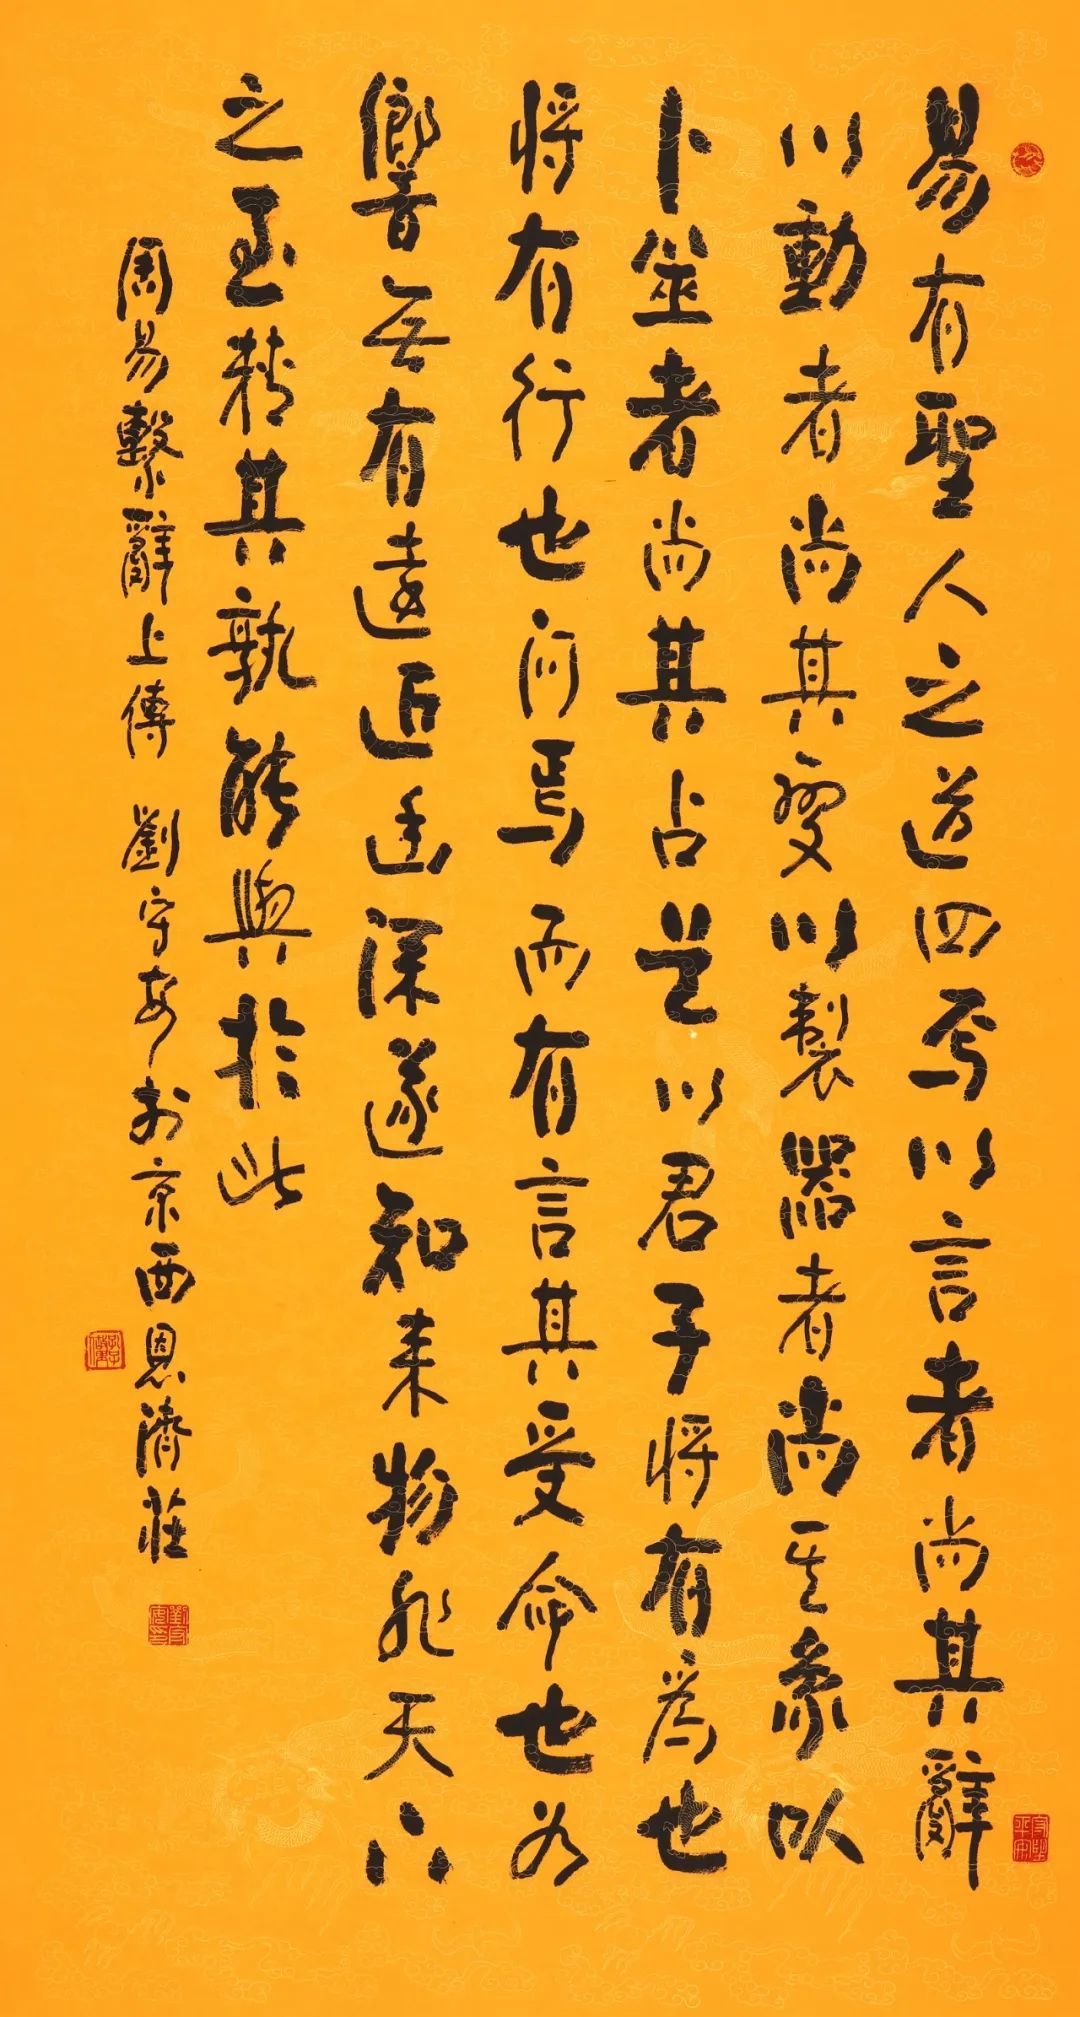 易有聖人之道四焉以言者尚其辭
以動者尚其變以製器者尚其象以
卜筮者尚其占是以君子将有為也
将有行也問焉而有言其受命也如
響無有遠近幽深遂知来物非天下
之至精其孰能與於此
周易繫辭上傳 劉守安於京西恩濟莊